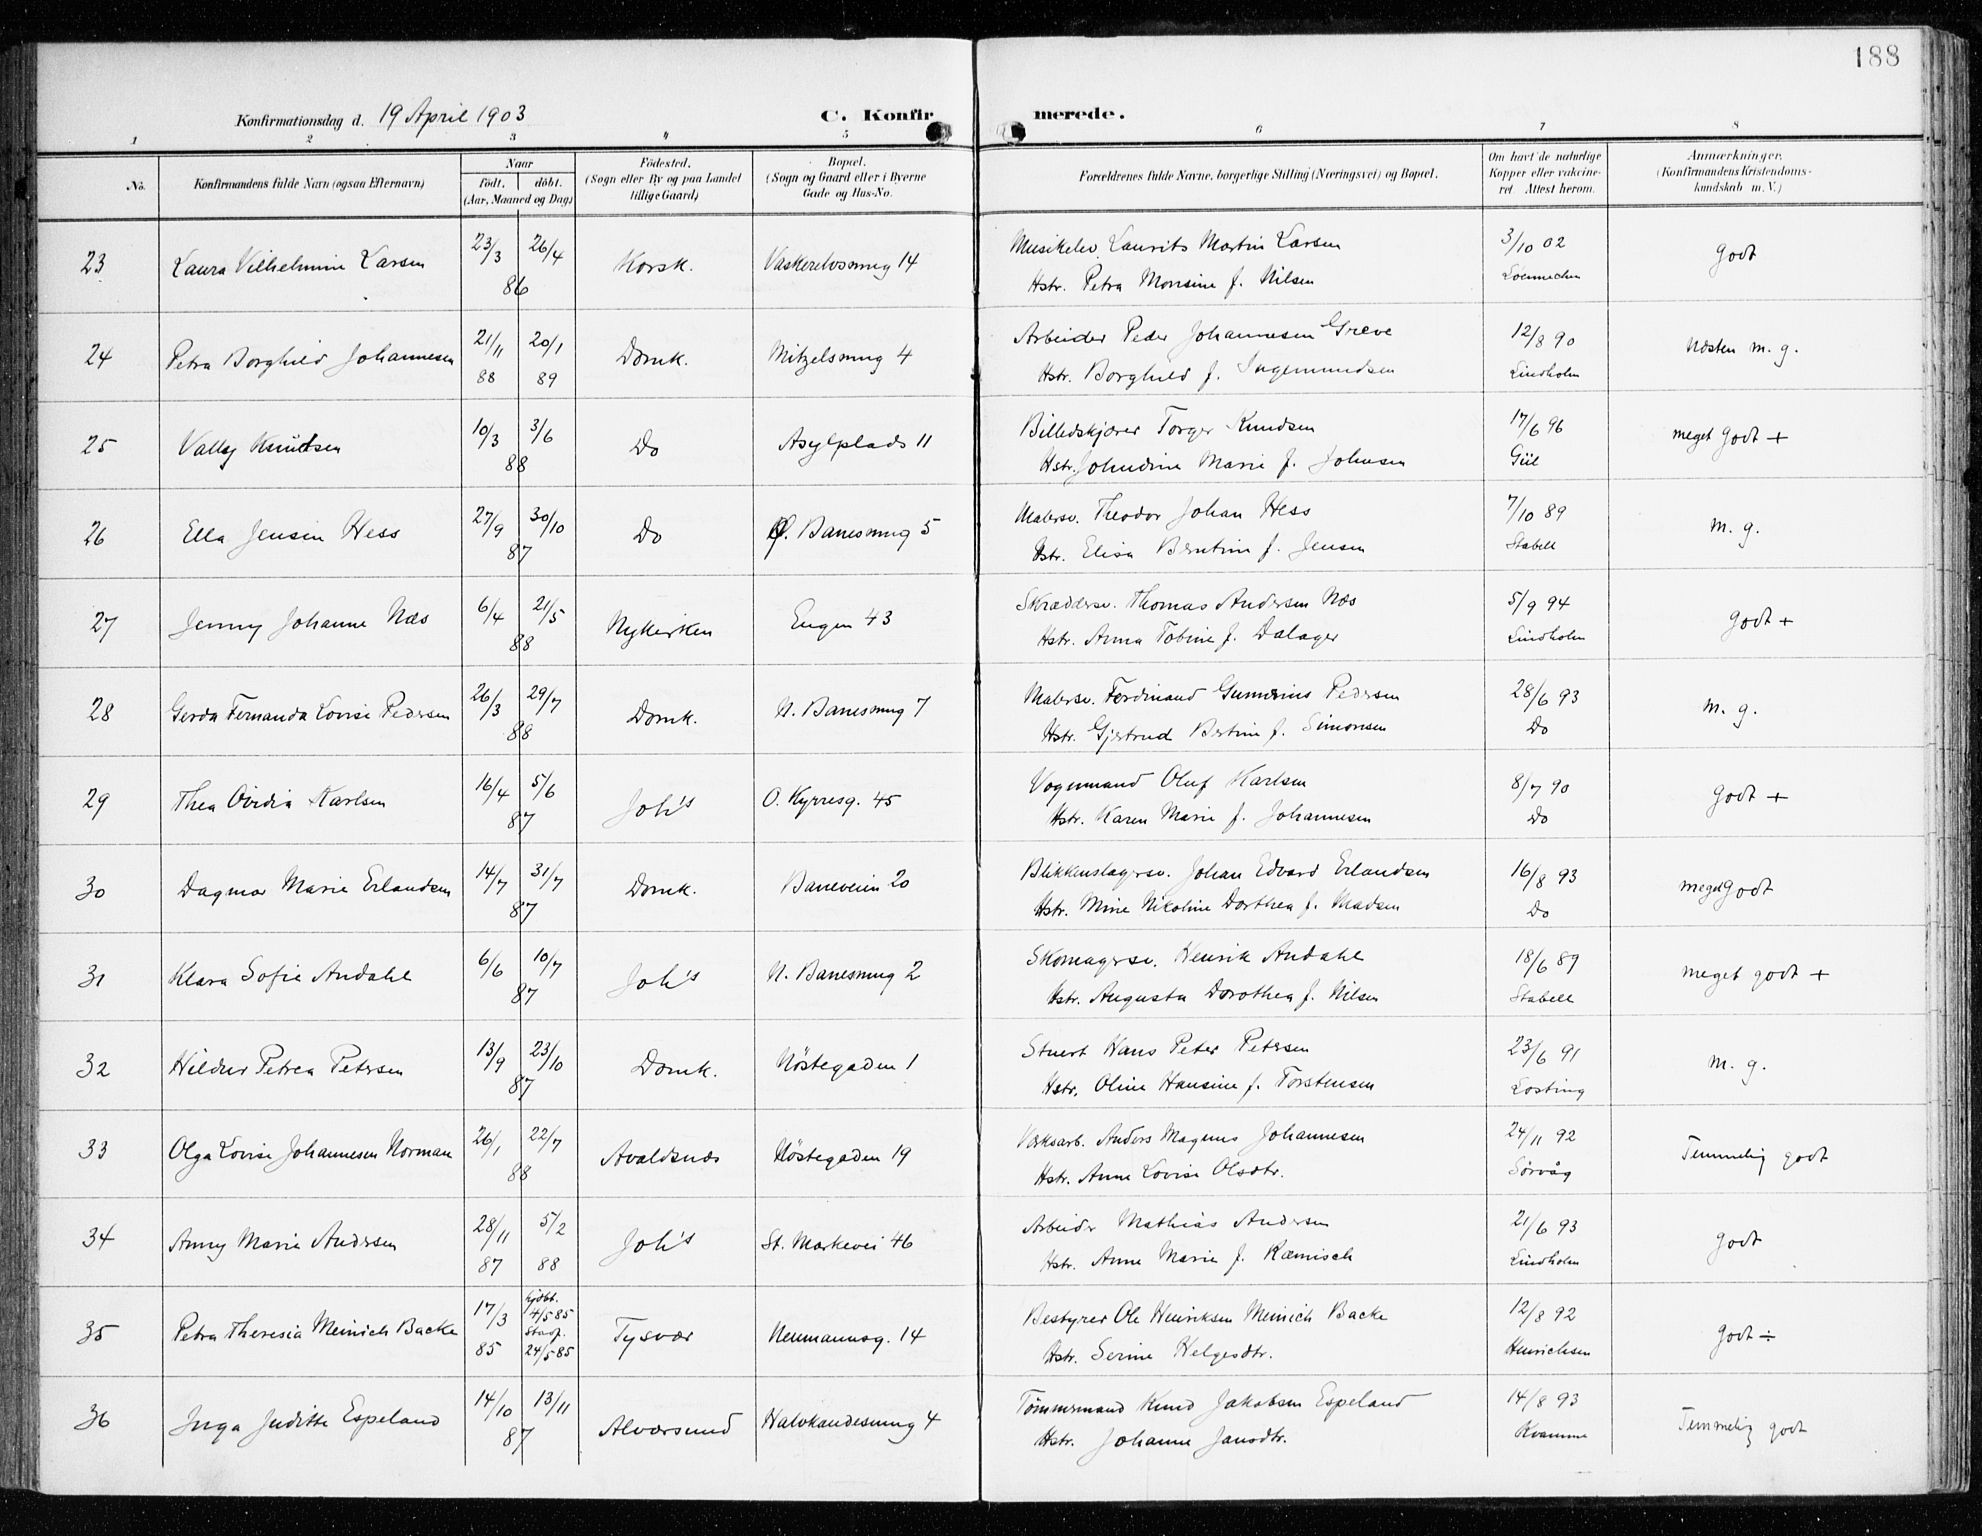 188
Konfirmationsdag d. 19 April 1903 C. Konfirmerede.
1 2 3 4 5 6 7 8
No. Konfirmandens fulde Navn (ogsaa Efternavn) Naar født. døbt. (Aar, Maaned og Dag) Fødested. (Sogn eller By og paa Landet tillige Gaard) Bopæl. (Sogn og Gaard eller i Byerne Gade og Hus-No. Forældrenes fulde Navne, borgerlige Stilling (Næringsvei) og Bopæl. Om havt de naturlige Kopper eller vakcineret. Attest herom. Anmærkninger. (Konfirmandens Kristendomskundskab m. V.)
23 Laura Vilhelmine Larsen 23/3 26/4 86 Korsk. Vaskerelvsmug 14 Musikelev Laurits Martin Larsen 3/10 02 Godt
Hstr. Petra Monsine f. Nilsen Loennechen
24 Petra Borghild Johannesen 21/11 88 20/1 89 Domk. Mitzelsmug 4 Arbeider Peder Johannesen Greve 12/8 90 Næsten m. g.
Hstr. Borghild f. Ingemundsen Lindholm
25 Vally Knudsen 10/3 3/6 88 Do Asylplads 11 Billedskjærer Torger Knudsen 17/6 96 meget Godt +
Hstr. Johndine Marie f. Johnsen Giil
26 Ella Jensin Hess 27/9 30/10 87 Do Ø. Banesmug 5 Malersv. Theodor Johan Hess 7/10 89 m. g.
Hstr. Elisa Berntine f. Jensen Stabell
27 Jenny Johanne Næs 6/4 21/5 88 Nykirken Engen 43 Skræddersv. Thomas Andersen Næs 5/9 94 Godt +
Hstr. Anna Tobine f. Dalager Lindholm
28 Gerda Fernanda Lovise Pedersen 26/3 29/7 88 Domk. N. Banesmug 7 Malersv. Ferdinand Gumerius Pedersen 28/6 93 m. g.
Hstr. Gjertrud Bertine f. Simonsen Do
29 Thea Ovidia Karlsen 16/4 5/6 87 Joh's O. Kyrresg. 45 Vognmand Oluf Karlsen 8/7 90 Godt +
Hstr. Karen Marie f. Johannesen Do
30 Dagmar Marie Erlandsen 14/7 31/7 87 Domk. Baneveien 20 Blikkenslagersv. Johan Edvard Erlandsen 16/8 93 meget Godt
Hstr. Mine Nikoline Dorthea f. Madsen Do
31 Klara Sofie Andahl 6/6 10/7 87 Joh's N. Banesmug 2 Skomagersv. Henrik Andahl 18/6 89 meget godt +
Hstr. Augusta Dorothea f. Nilsen Stabell
32 Hildur Petrea Petersen 13/9 23/10 87 Domk. Nöstegaden 1 Stuert Hans Peter Petersen 23/6 91 m. g.
Hstr. Oline Hansine f. Torstensen Losting
33 Olga Lovise Johannesen Norman 26/1 22/7 88 Avaldsnæs Nöstegaden 19 Værksarb. Anders Magnus Johannesen 24/11 92 Temmelig godt
Hstr. Anne Lovise Olsdtr. Sörvåg
34 Anny Marie Andersen 28/11 87 5/2 88 Joh's St. Markevei 46 Arbeider Mathias Andersen 21/6 93 Godt
Hstr. Anne Marie f. Ræmisch Lindholm
35 Petra Theresia Meinich Backe 17/3 85 hjdbt. 4/5 85 Stadf. 24/5 85 Tysvær Neumannsg. 14 Bestyrer Ole Henriksen Meinich Backe 12/8 92 Godt ÷
Hstr. Serine Helgesdtr. Henrichsen
36 Inga Juditte Espeland 14/10 13/11 87 Alværsund Halvkandesmug 4 Tömmermand Knud Jakobsen Espeland 14/8 93 Temmelig godt
Hstr. Johanne Jansdtr. Kvamme